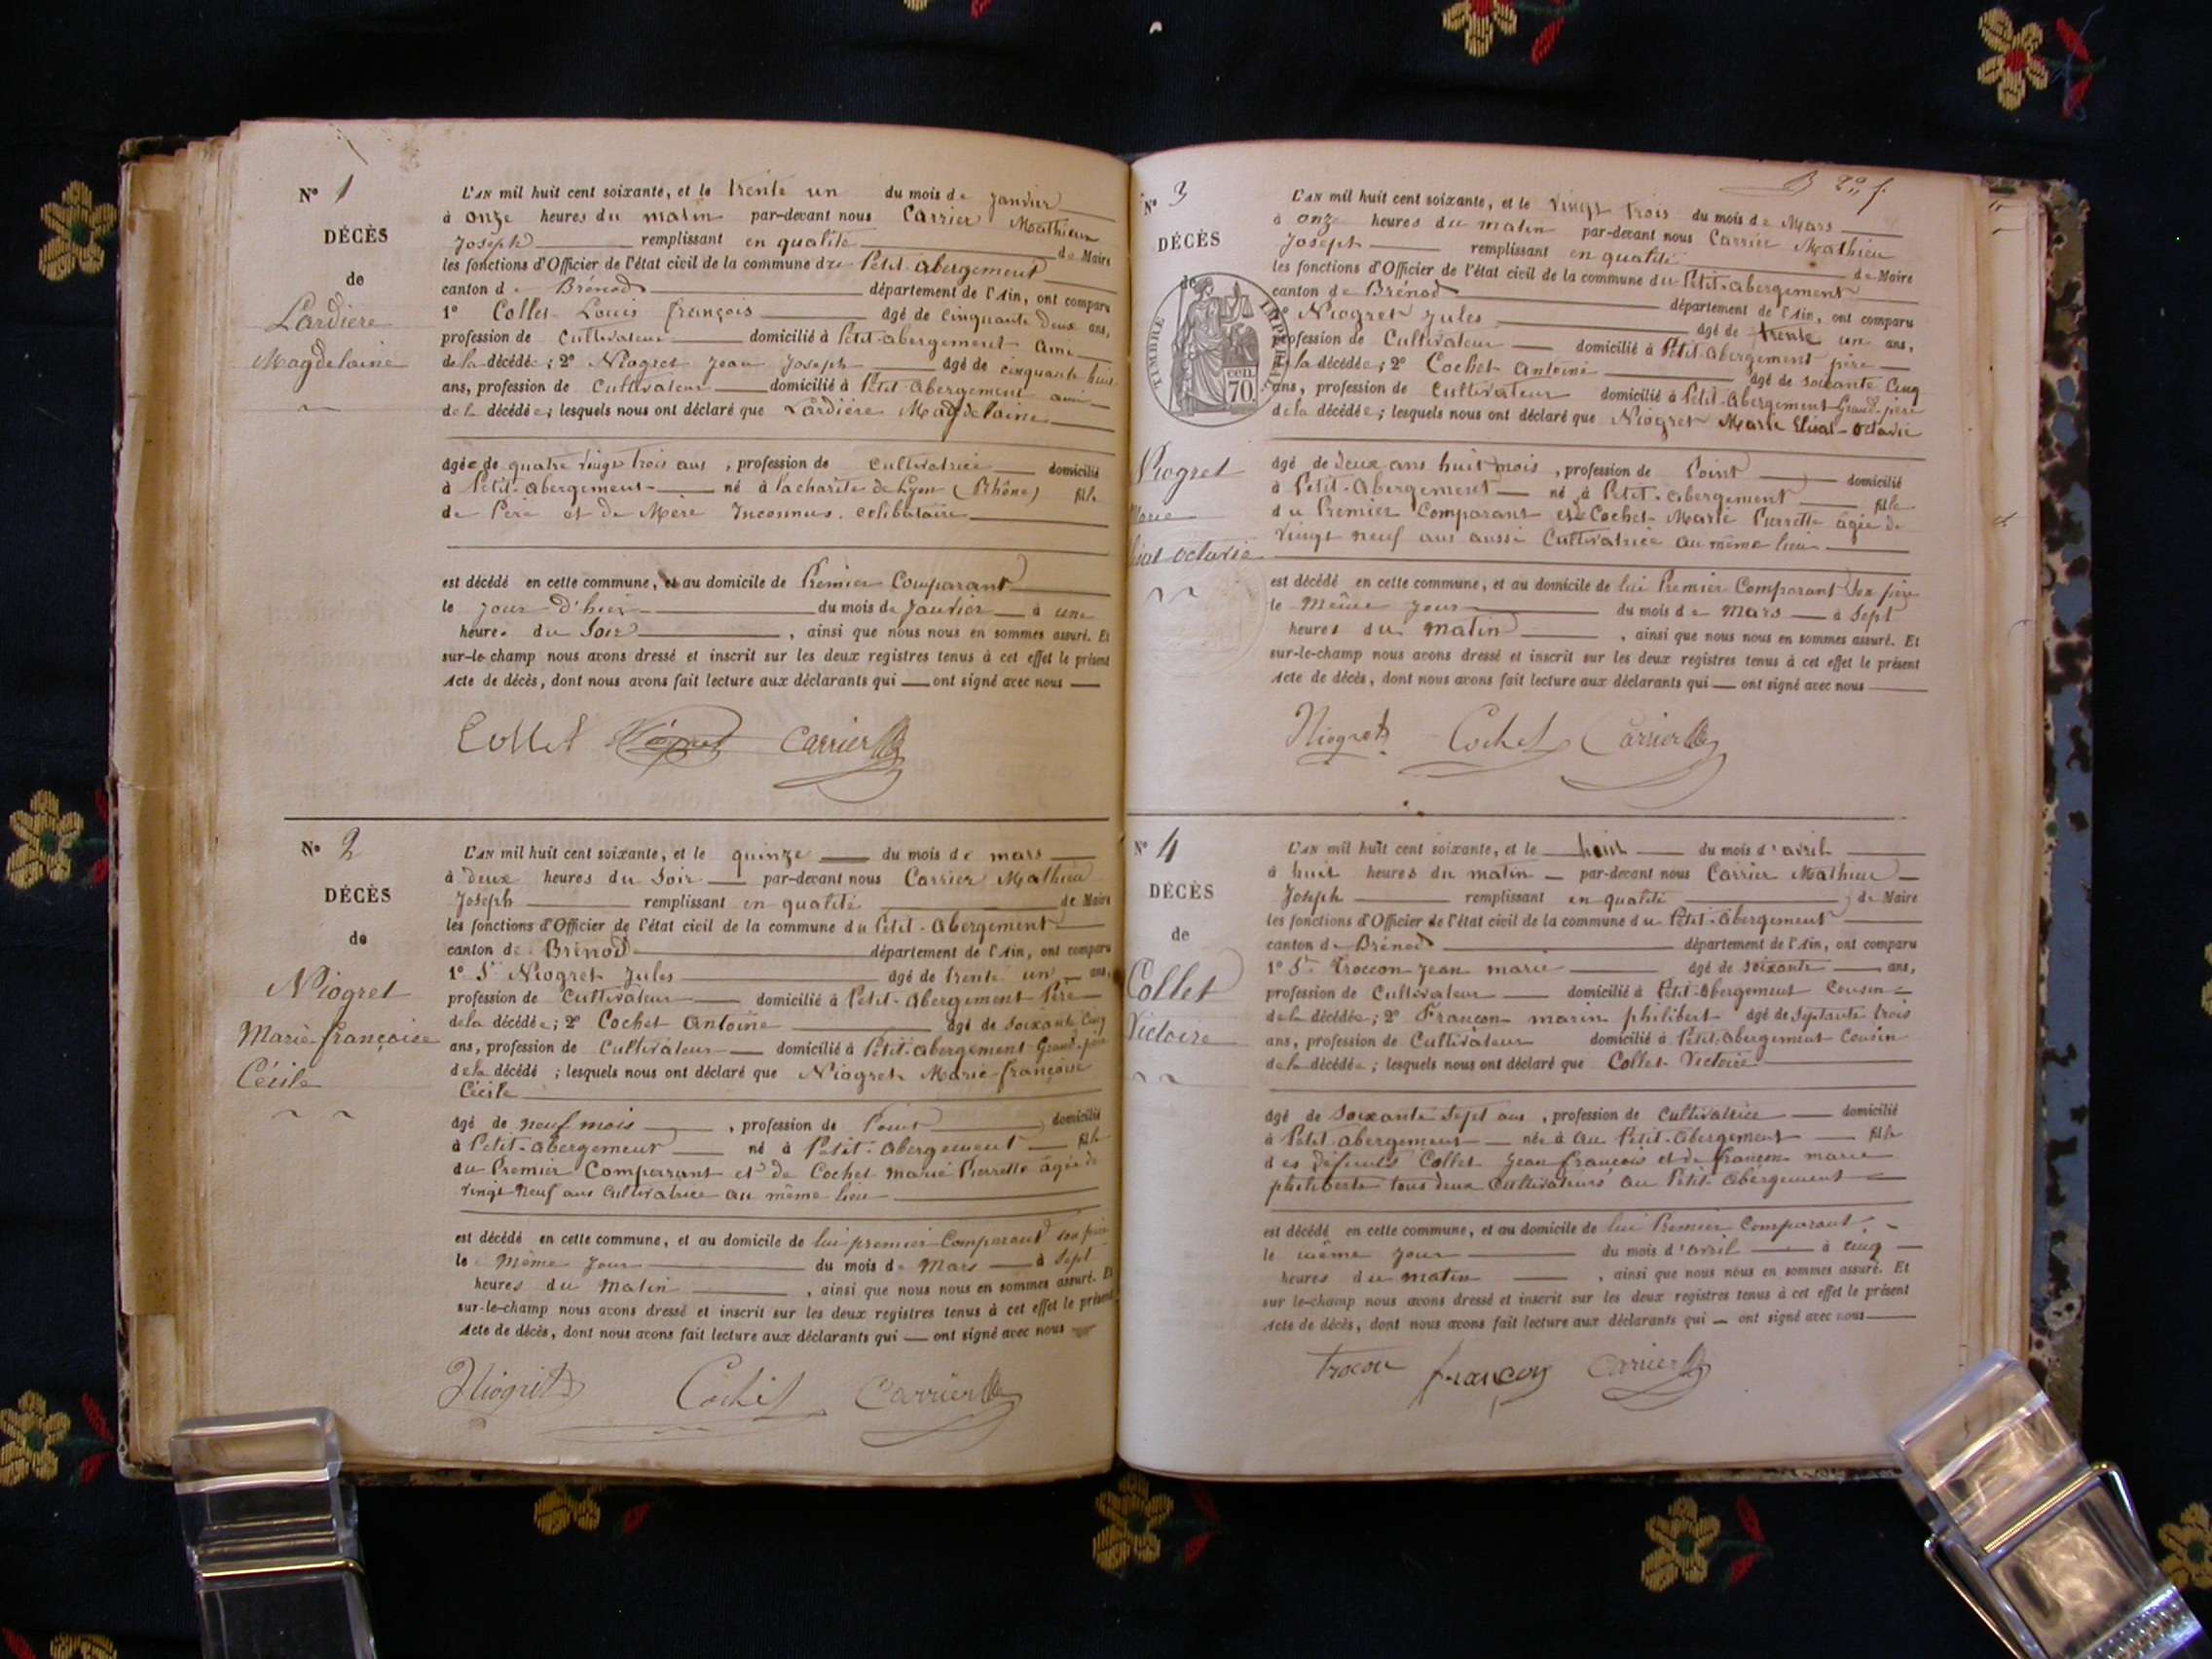 N° 1
DÉCÈS
de
Lardiere
Magdelaine
L'AN mil huit cent soixante, et le trente un du mois de janvier
à onze heures du matin par-devant nous Carrier Mathieu
Joseph remplissant en qualité de Maire
les fonctions d'Officier de l'état civil de la commune du Petit-abergement
canton de Brénod département de l'Ain, ont comparu
1° Collet Louis françois âgé de cinquante deux ans,
profession de Cultivateur domicilié à Petit-abergement ami
de la décédée; 2° Niogret jean Joseph âgé de cinquante huit
ans, profession de Cultivateur domicilié à Petit-abergement ami
de la décédée; lesquels nous ont déclaré que Lardiére Magdelaine
âgée de quatre vingt trois ans, profession de cultivatrice domicilié
à Petit-abergement né à la charité de Lyon (Rhône) fille
de Père et de Mère Inconnus. celibataire
est décédé en cette commune, et au domicile de Premier Comparant
le jour d'hier du mois de janvier à une
heures du Soir, ainsi que nous nous en sommes assuré. Et
sur-le-champ nous avons dressé et inscrit sur les deux registres tenus à cet effet le présent
Acte de décès, dont nous avons fait lecture aux déclarants qui ont signé avec nous
Collet Niogret Carrier
N° 2
DÉCÈS
de
Niogret
Marie françoise
Cécile
L'AN mil huit cent soixante, et le quinze du mois de mars
à deux heures du Soir par-devant nous Carrier Mathieu
Joseph remplissant en qualité de Maire
les fonctions d'Officier de l'état civil de la commune du Petit-abergement
canton de Brénod département de l'Ain, ont comparu
1° Sr Niogret jules âgé de trente un ans,
profession de Cultivateur domicilié à Petit-abergement Père
de la décédée; 2° Cochet Antoine âgé de soixante Cinq
ans, profession de Cultivateur domicilié à Petit-abergement Grand-père
de la décédé; lesquels nous ont déclaré que Niogret Marie françoise
Cécile
âgé de neuf mois, profession de Point domicilié
à Petit-abergement né à Petit-abergement fille
du Premier Comparant et de Cochet marie Pierrette âgée de
vingt neuf ans cultivatrice au même lieu
est décédé en cette commune, et au domicile de lui premier Comparant son père
le même jour du mois de Mars à Sept
heures du matin, ainsi que nous nous en sommes assuré. Et
sur-le-champ nous avons dressé et inscrit sur les deux registres tenus à cet effet le présent
Acte de décès, dont nous avons fait lecture aux déclarants qui ont signé avec nous
Niogret Cochet Carrier
N° 3
DÉCÈS
de
TIMBRE IMPÉRIAL
70 cen
Niogret
Marie
octavie
L'AN mil huit cent soixante, et le vingt trois du mois de Mars
à onze heures du matin par-devant nous Carrier Mathieu
Joseph remplissant en qualité de Maire
les fonctions d'Officier de l'état civil de la commune du Petit-abergement
canton de Brénod département de l'Ain, ont comparu
1° Niogret jules âgé de trente un ans,
profession de Cultivateur domicilié à Petit-Abergement père
de la décédée; 2° Cochet Antoine âgé de soixante Cinq
ans, profession de Cultivateur domicilié à Petit-Abergement Grand-père
de la décédée; lesquels nous ont déclaré que Niogret Marie octavie
âgé de deux ans huit mois, profession de Point domicilié
à Petit-Abergement né à Petit-abergement fille
du Premier Comparant et de Cochet Marie Pierrette âgée de
vingt neuf ans aussi Cultivatrice au même lieu
est décédé en cette commune, et au domicile de lui Premier Comparant Son père
le même jour du mois de mars à Sept
heures du matin, ainsi que nous nous en sommes assuré. Et
sur-le-champ nous avons dressé et inscrit sur les deux registres tenus à cet effet le présent
Acte de décès, dont nous avons fait lecture aux déclarants qui ont signé avec nous
Niogret Cochet Carrier
N° 4
DÉCÈS
de
Collet
Victoire
L'AN mil huit cent soixante, et le huit du mois d'avril
à huit heures du matin par-devant nous Carrier Mathieu
Joseph remplissant en qualité de Maire
les fonctions d'Officier de l'état civil de la commune du Petit-abergement
canton de Brénod département de l'Ain, ont comparu
1° Sr Troccon jean marie âgé de soixante ans,
profession de Cultivateur domicilié à Petit-abergement Cousin
de la décédée; 2° Françon marin philibert âgé de Septante trois
ans, profession de Cultivateur domicilié à Petit-abergement Cousin
de la décédée; lesquels nous ont déclaré que Collet Victoire
âgé de soixante Sept ans, profession de Cultivatrice domicilié
à Petit abergement née à au Petit-abergement fille
des défunts Collet jean françois et de françon marie
philiberte tous deux Cultivateurs au Petit-abergement
est décédé en cette commune, et au domicile de lui Premier Comparant,
le même jour du mois d'avril à cinq
heures du matin, ainsi que nous nous en sommes assuré. Et
sur le-champ nous avons dressé et inscrit sur les deux registres tenus à cet effet le présent
Acte de décès, dont nous avons fait lecture aux déclarants qui ont signé avec nous
trocon françon Carrier